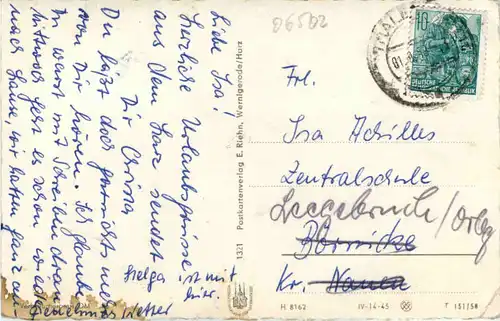 06502
Liebe Isa!
Herzliche Urlaubsgrüsse
aus dem Harz sendet
Dir Corinna
Du läßt doch garnichts mehr
von Dir hören. Ich glaube
Du warst mit Schreiben dran.
liegt es schon wieder
nach Hause, wir hatten ganz
Wetter
Helga ist mit
hier.
1321 Postkartenverlag E. Riehn, Wernigerode/Harz
10
DEUTSCHE
REPUBLIK
Frl.
Isa Achilles
Zentralschule
Leegebruch/
Börnicke
Kr. Nauen
H 8162
IV-14-45
T 151/58